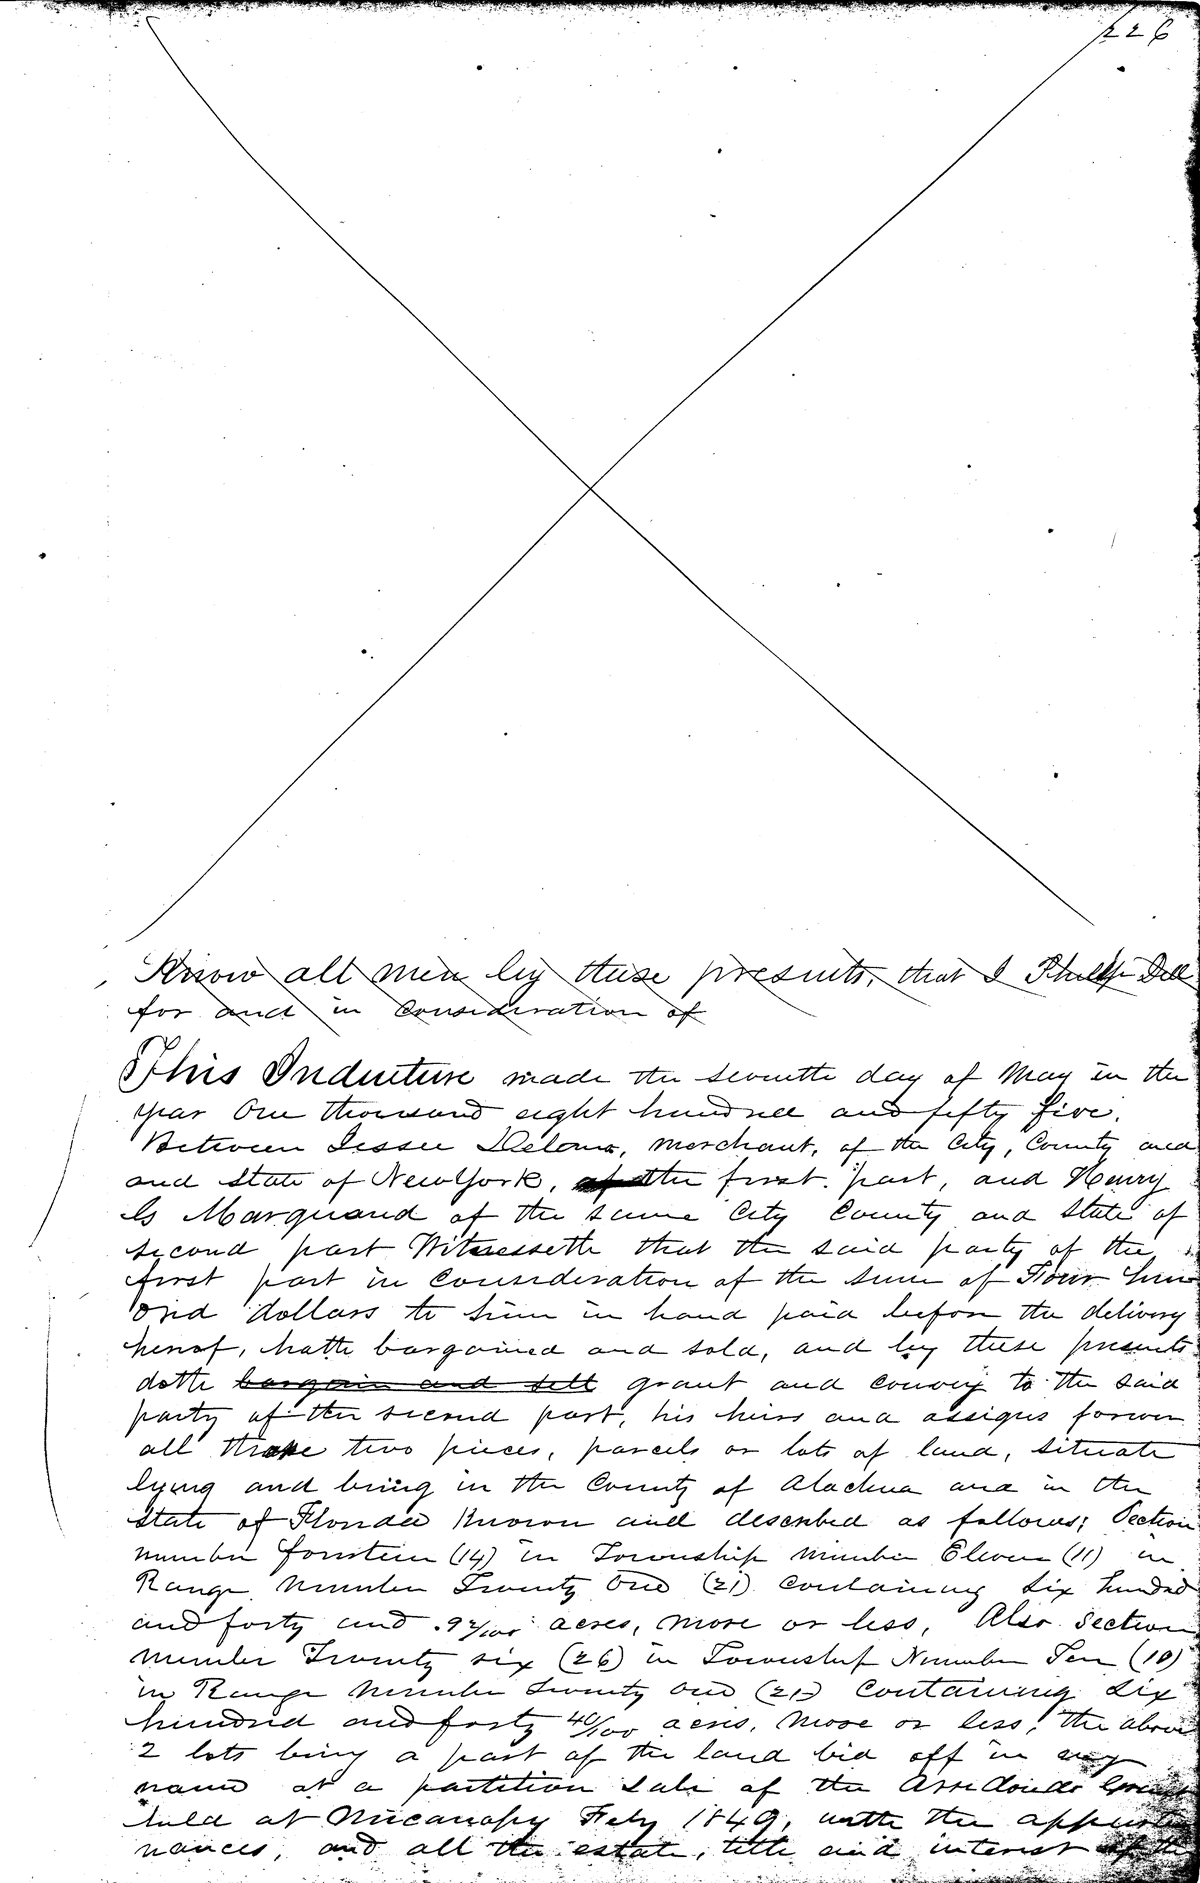 226
Know all men by these presents, that I Philip Dell
for and in consideration of
This Indenture made the seventh day of May in the
year One thousand eight hundred and fifty five.
Between Jesse Delano, merchant, of the City, County and
and State of New York, of the first part, and Henry
G Marquand of the same City County and State of
second part Witnesseth that the said party of the
first part in consideration of the sum of Four hun
drid dollars to him in hand paid before the delivery
hereof, hath bargained and sold, and by these presents
doth bargain and sell grant and convey to the said
party of the second part, his heirs and assigns forever
all those two pieces, parcels or lots of land, situate
lying and being in the County of Alachua and in the
State of Florida Known and described as follows; Section
number fourteen (14) in Township number Eleven (11) in
Range number Twenty One (21) containing six hundred
and forty and .92/100 acres, more or less, Also Section
number Twenty six (26) in Township Number Ten (10)
in Range number Twenty one (21) Containing six
hundred and forty 40/100 acres, more or less, the above
2 lots being a part of the land bid off in my
name at a partition sale of the Arredondo Grant
held at Micanopy Feby 1849, with the appurte
nances, and all the estate, title and interest of the